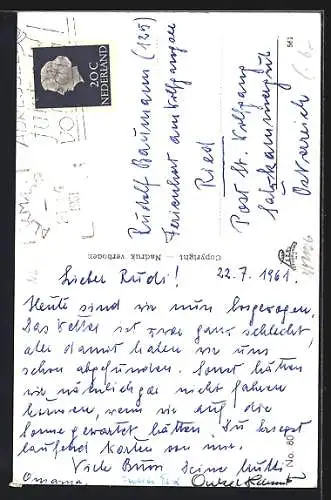 20C
NEDERLAND
Rudolf Baumann (125)
Ferienhort am Wolfgangsee
Ried
Post St. Wolfgang
Salzkammergut
Österreich
561
Copyright — Nadruk verboden
No. 80
Lieber Rudi! 22.7.1961.
Heute sind wir nun
Das Wetter ist zwar ganz schlecht
aber damit haben wir uns
schon abgefunden. Sonst hätten
wir nämlich gar nicht fahren
können, wenn wir auf die
Sonne gewartet hätten. Du kriegst
laufend Karten von mir.
Viele Deine Mutti
Omama